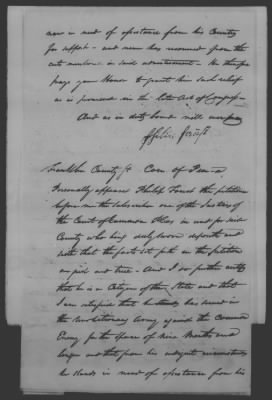 now in need of assistance from his Country
for support – and never has received from the
. He therefore
prays your Honor to grant him such relief
as is provided in the late Act of Congress
And as in duty bound will ever pray
Franklin County ss Com of Penna
Personally appeared Philip the petitioner
before me the subscriber one of the Justices of
the Court of Common Pleas in and for said
County who being duly sworn deposeth and
saith that the facts set forth in the petition
are just and true – And I do further certify
that he is a Citizen of this State and that
I am satisfied that he has served in
the Revolutionary Army against the Common
Enemy for the space of Nine Months and
longer and that from his indigent circumstances
he stands in need of assistance from his